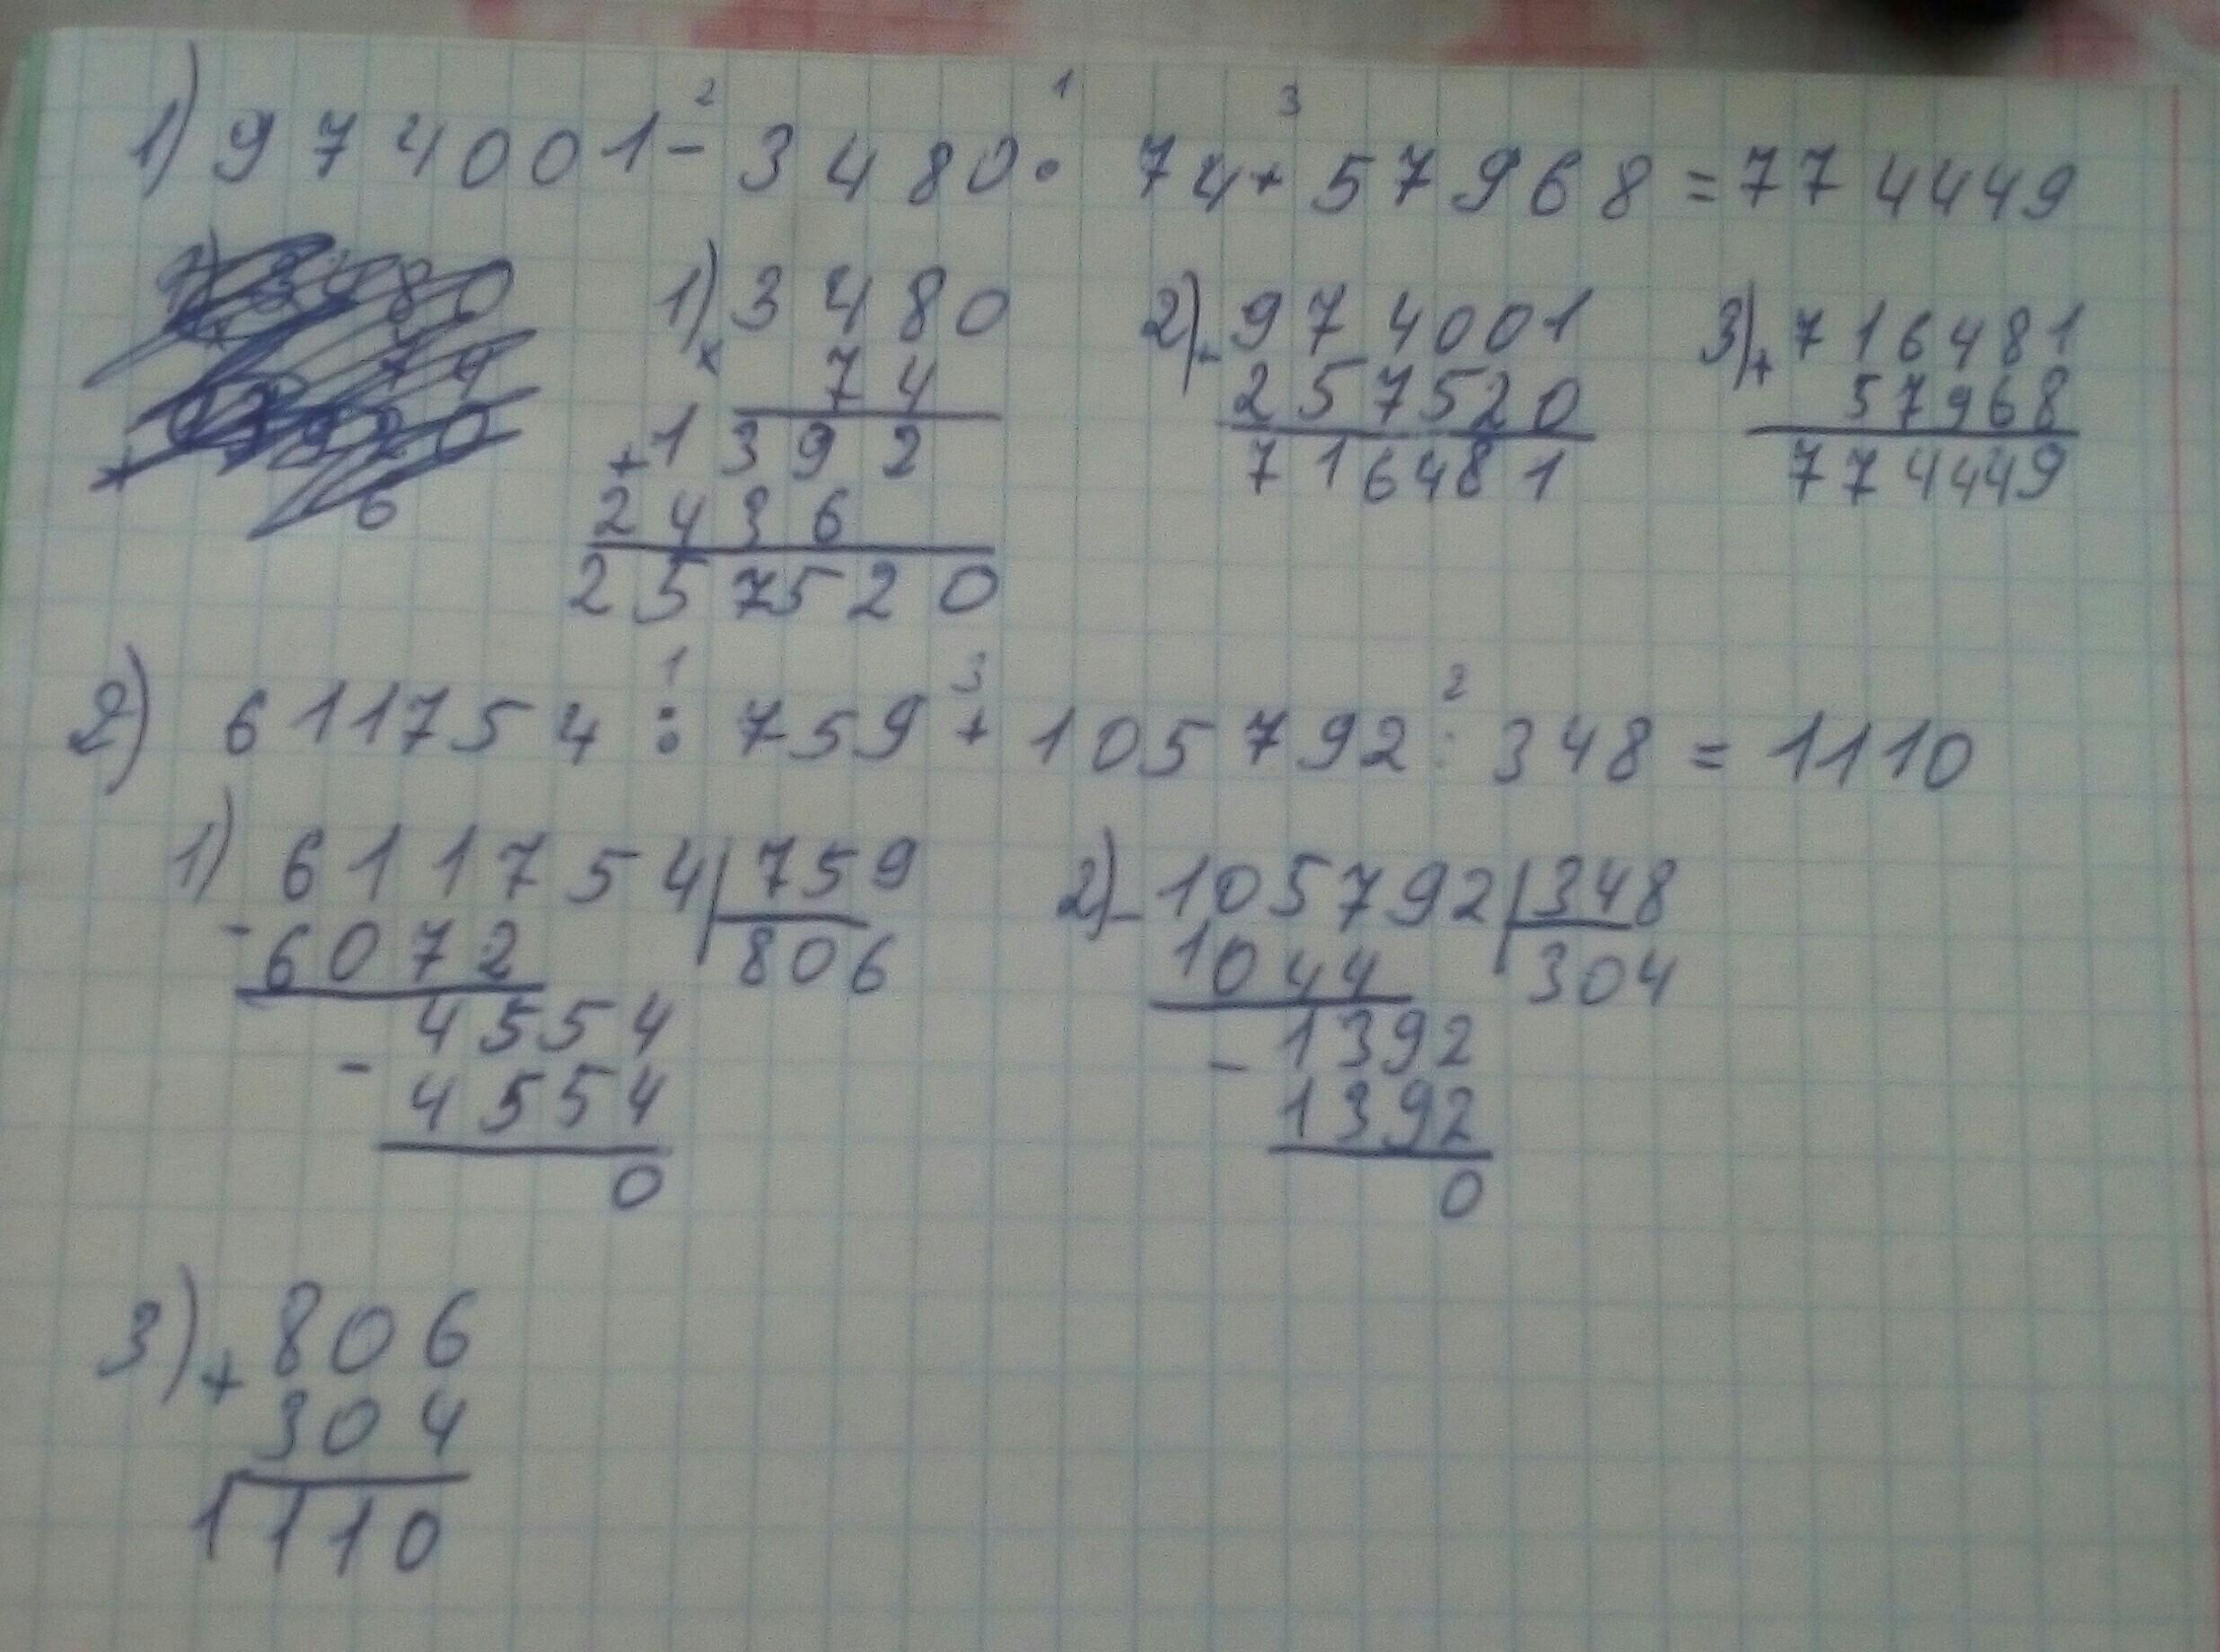 1) 974001 - 3480 · 74 + 57968 = 774449
2 1 3
1) 3480
×
74
+1392
2436
257520
2) - 974001
257520
716481
3) + 716481
57968
774449
2) 611754 : 759 + 105792 : 348 = 1110
1 3 2
1) 611754 | 759
- 6072 806
4554
- 4554
0
2) - 105792 | 348
1044 304
- 1392
1392
0
3) + 806
304
1110